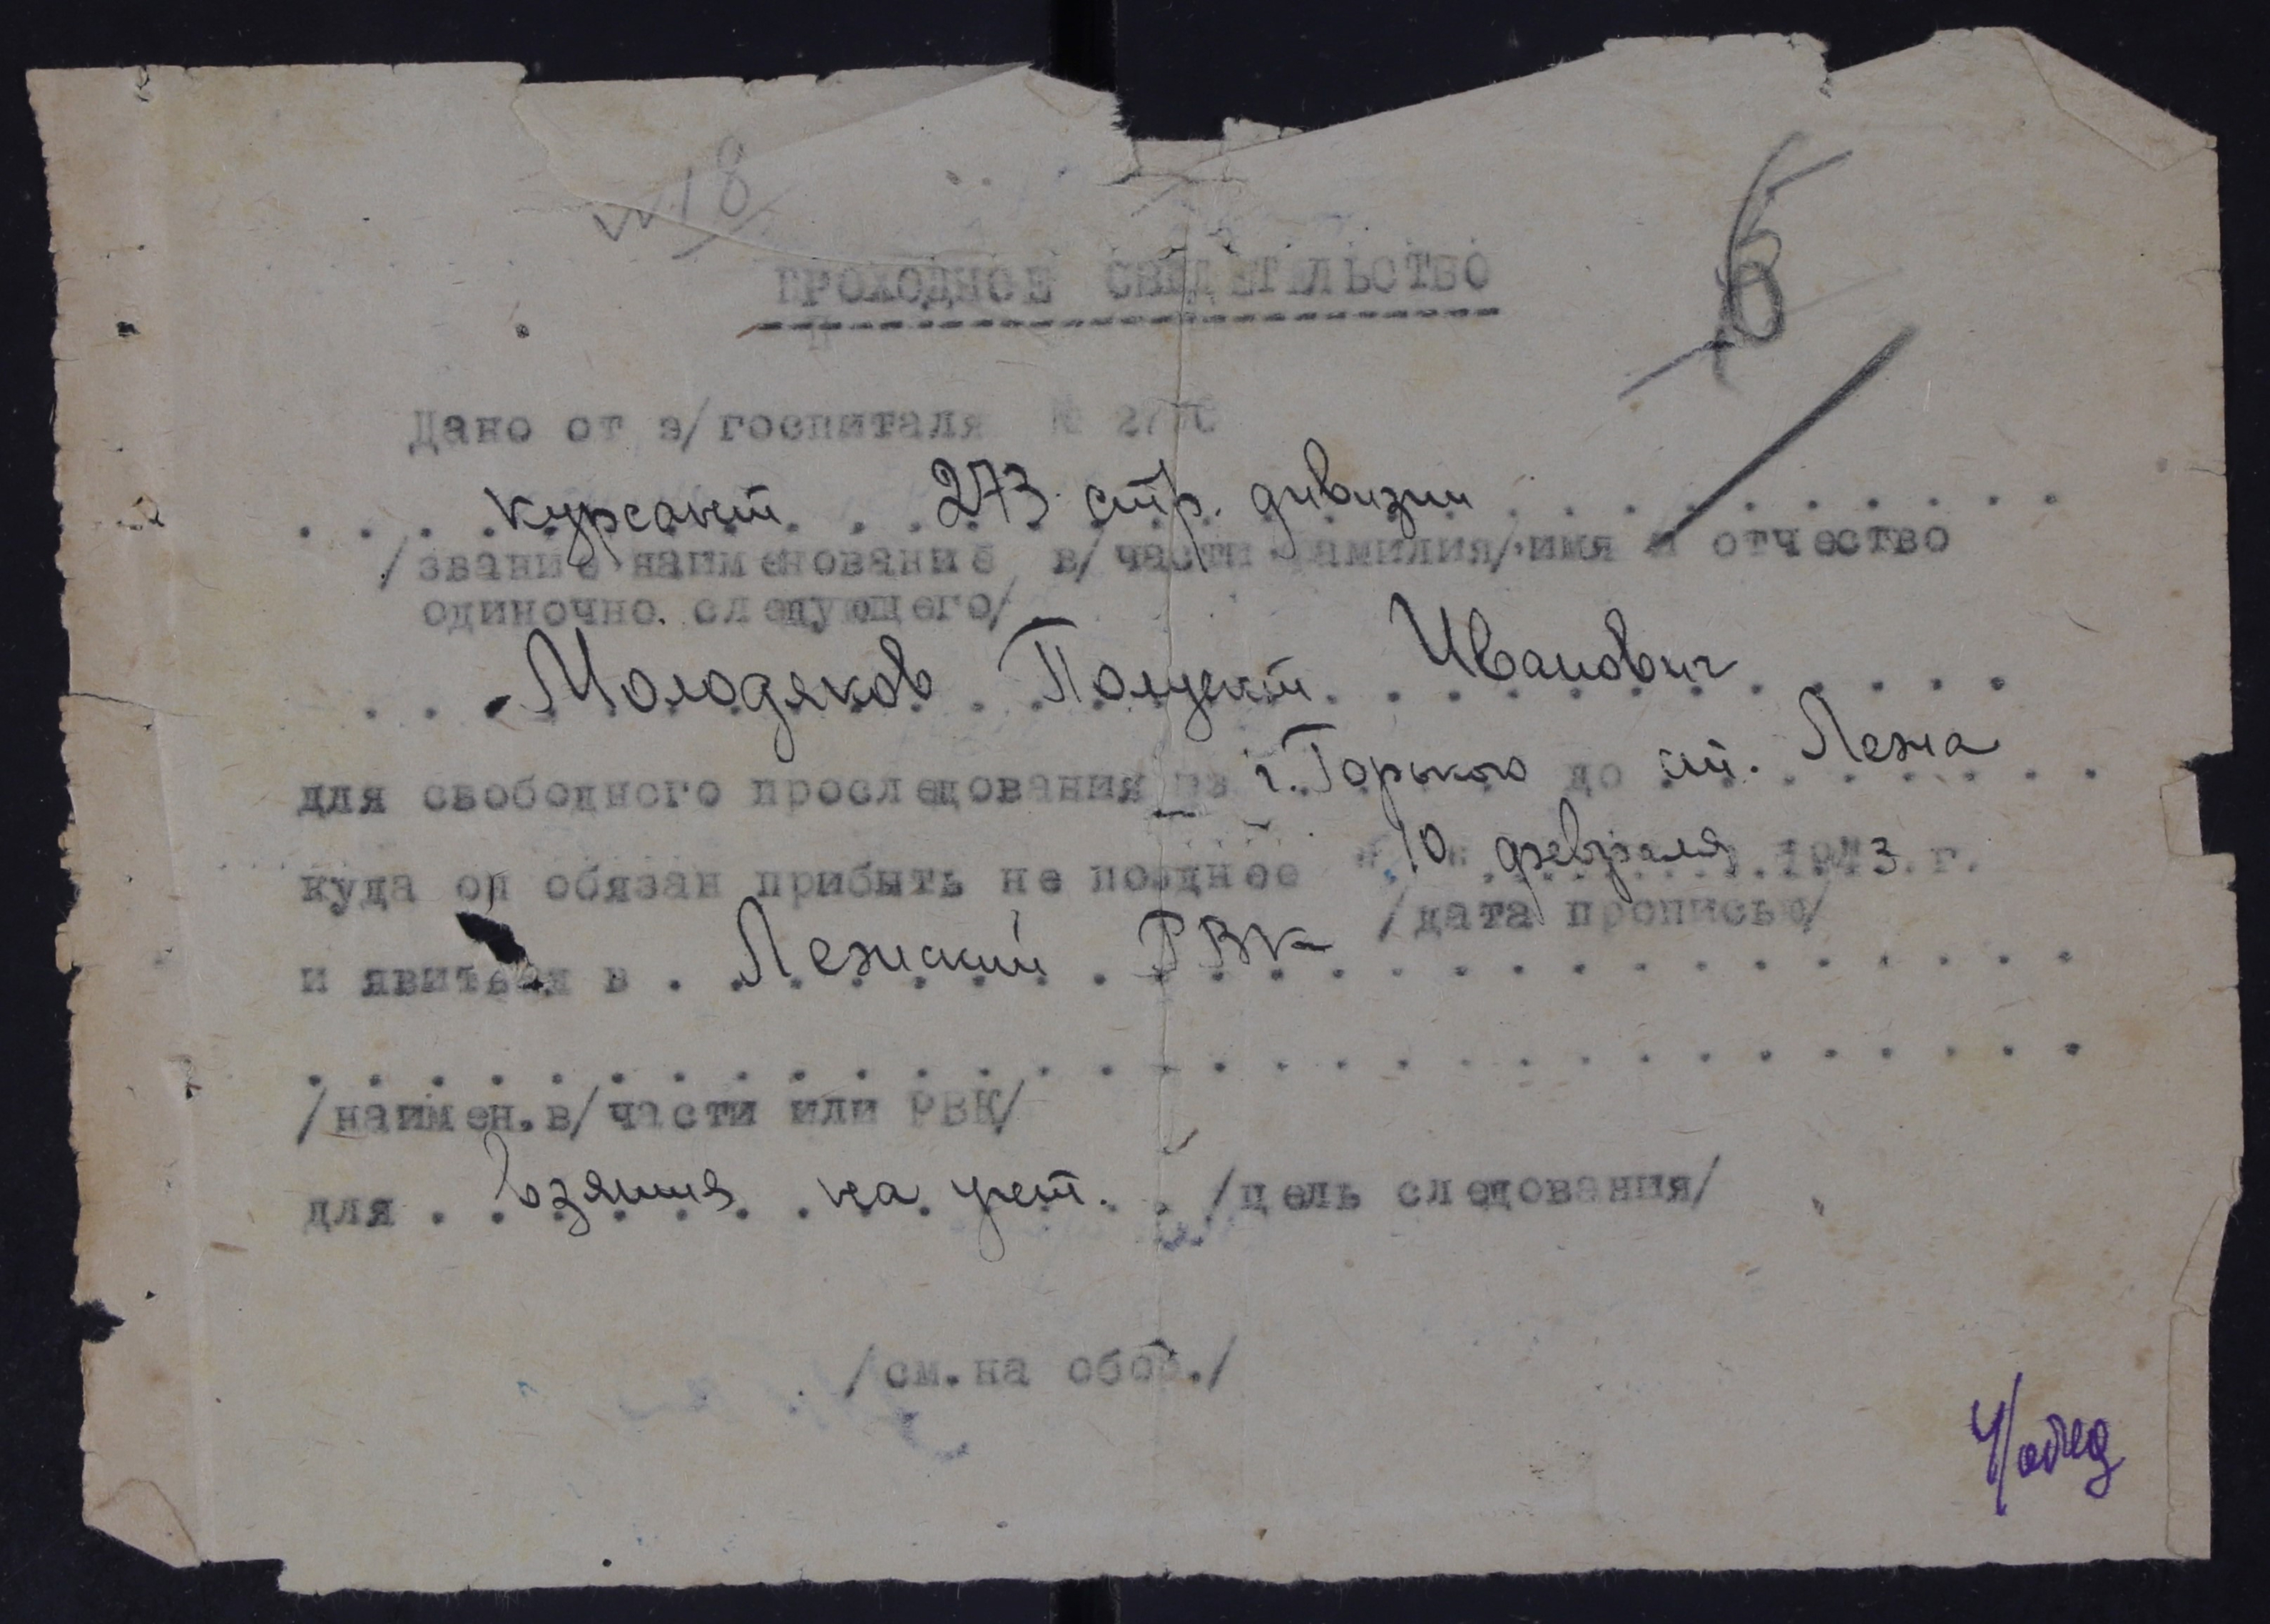 №18
6
ПРОХОДНОЕ СВИДЕТЕЛЬСТВО
Дано от э/госпиталя №
курсант 273 стр. дивизии
/звание наименование в/части фамилия/имя и отчество
одиночно следующего/
Молодяков Полуект Иванович
для свободного проследования из г. Горького до ст. Лежа
куда он обязан прибыть не позднее "10" февраля 1943 г.
/дата прописью/
и явиться в Лежский РВК
/наимен.в/части или РВК/
для взятия на учет. /цель следования/
/см.на обор./